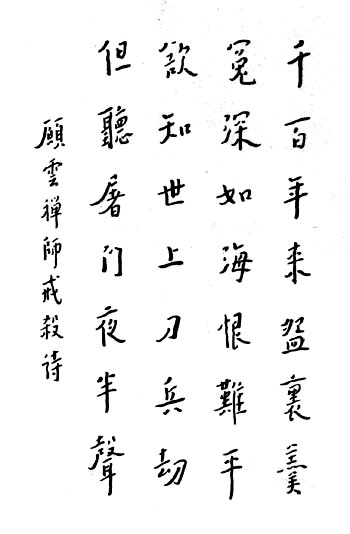 千百年来盌裏羹
冤深如海恨難平
欲知世上刀兵劫
但聽屠门夜半聲
願雲禅師戒殺诗